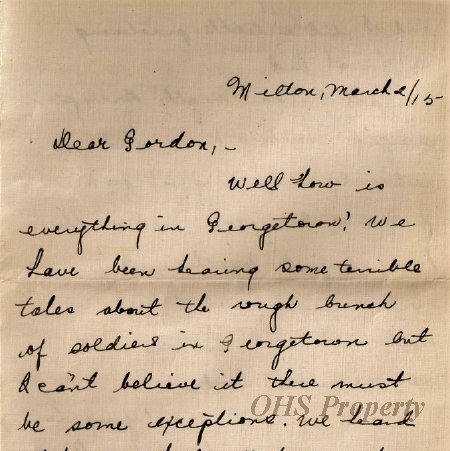 Milton, March 2/15
Dear Gordon, -
Well how is
everything in Georgetown? We
have been hearing some terrible
tales about the rough bunch
of soldiers in Georgetown but
I can't believe it there must
be some exceptions. We heard
OHS Property